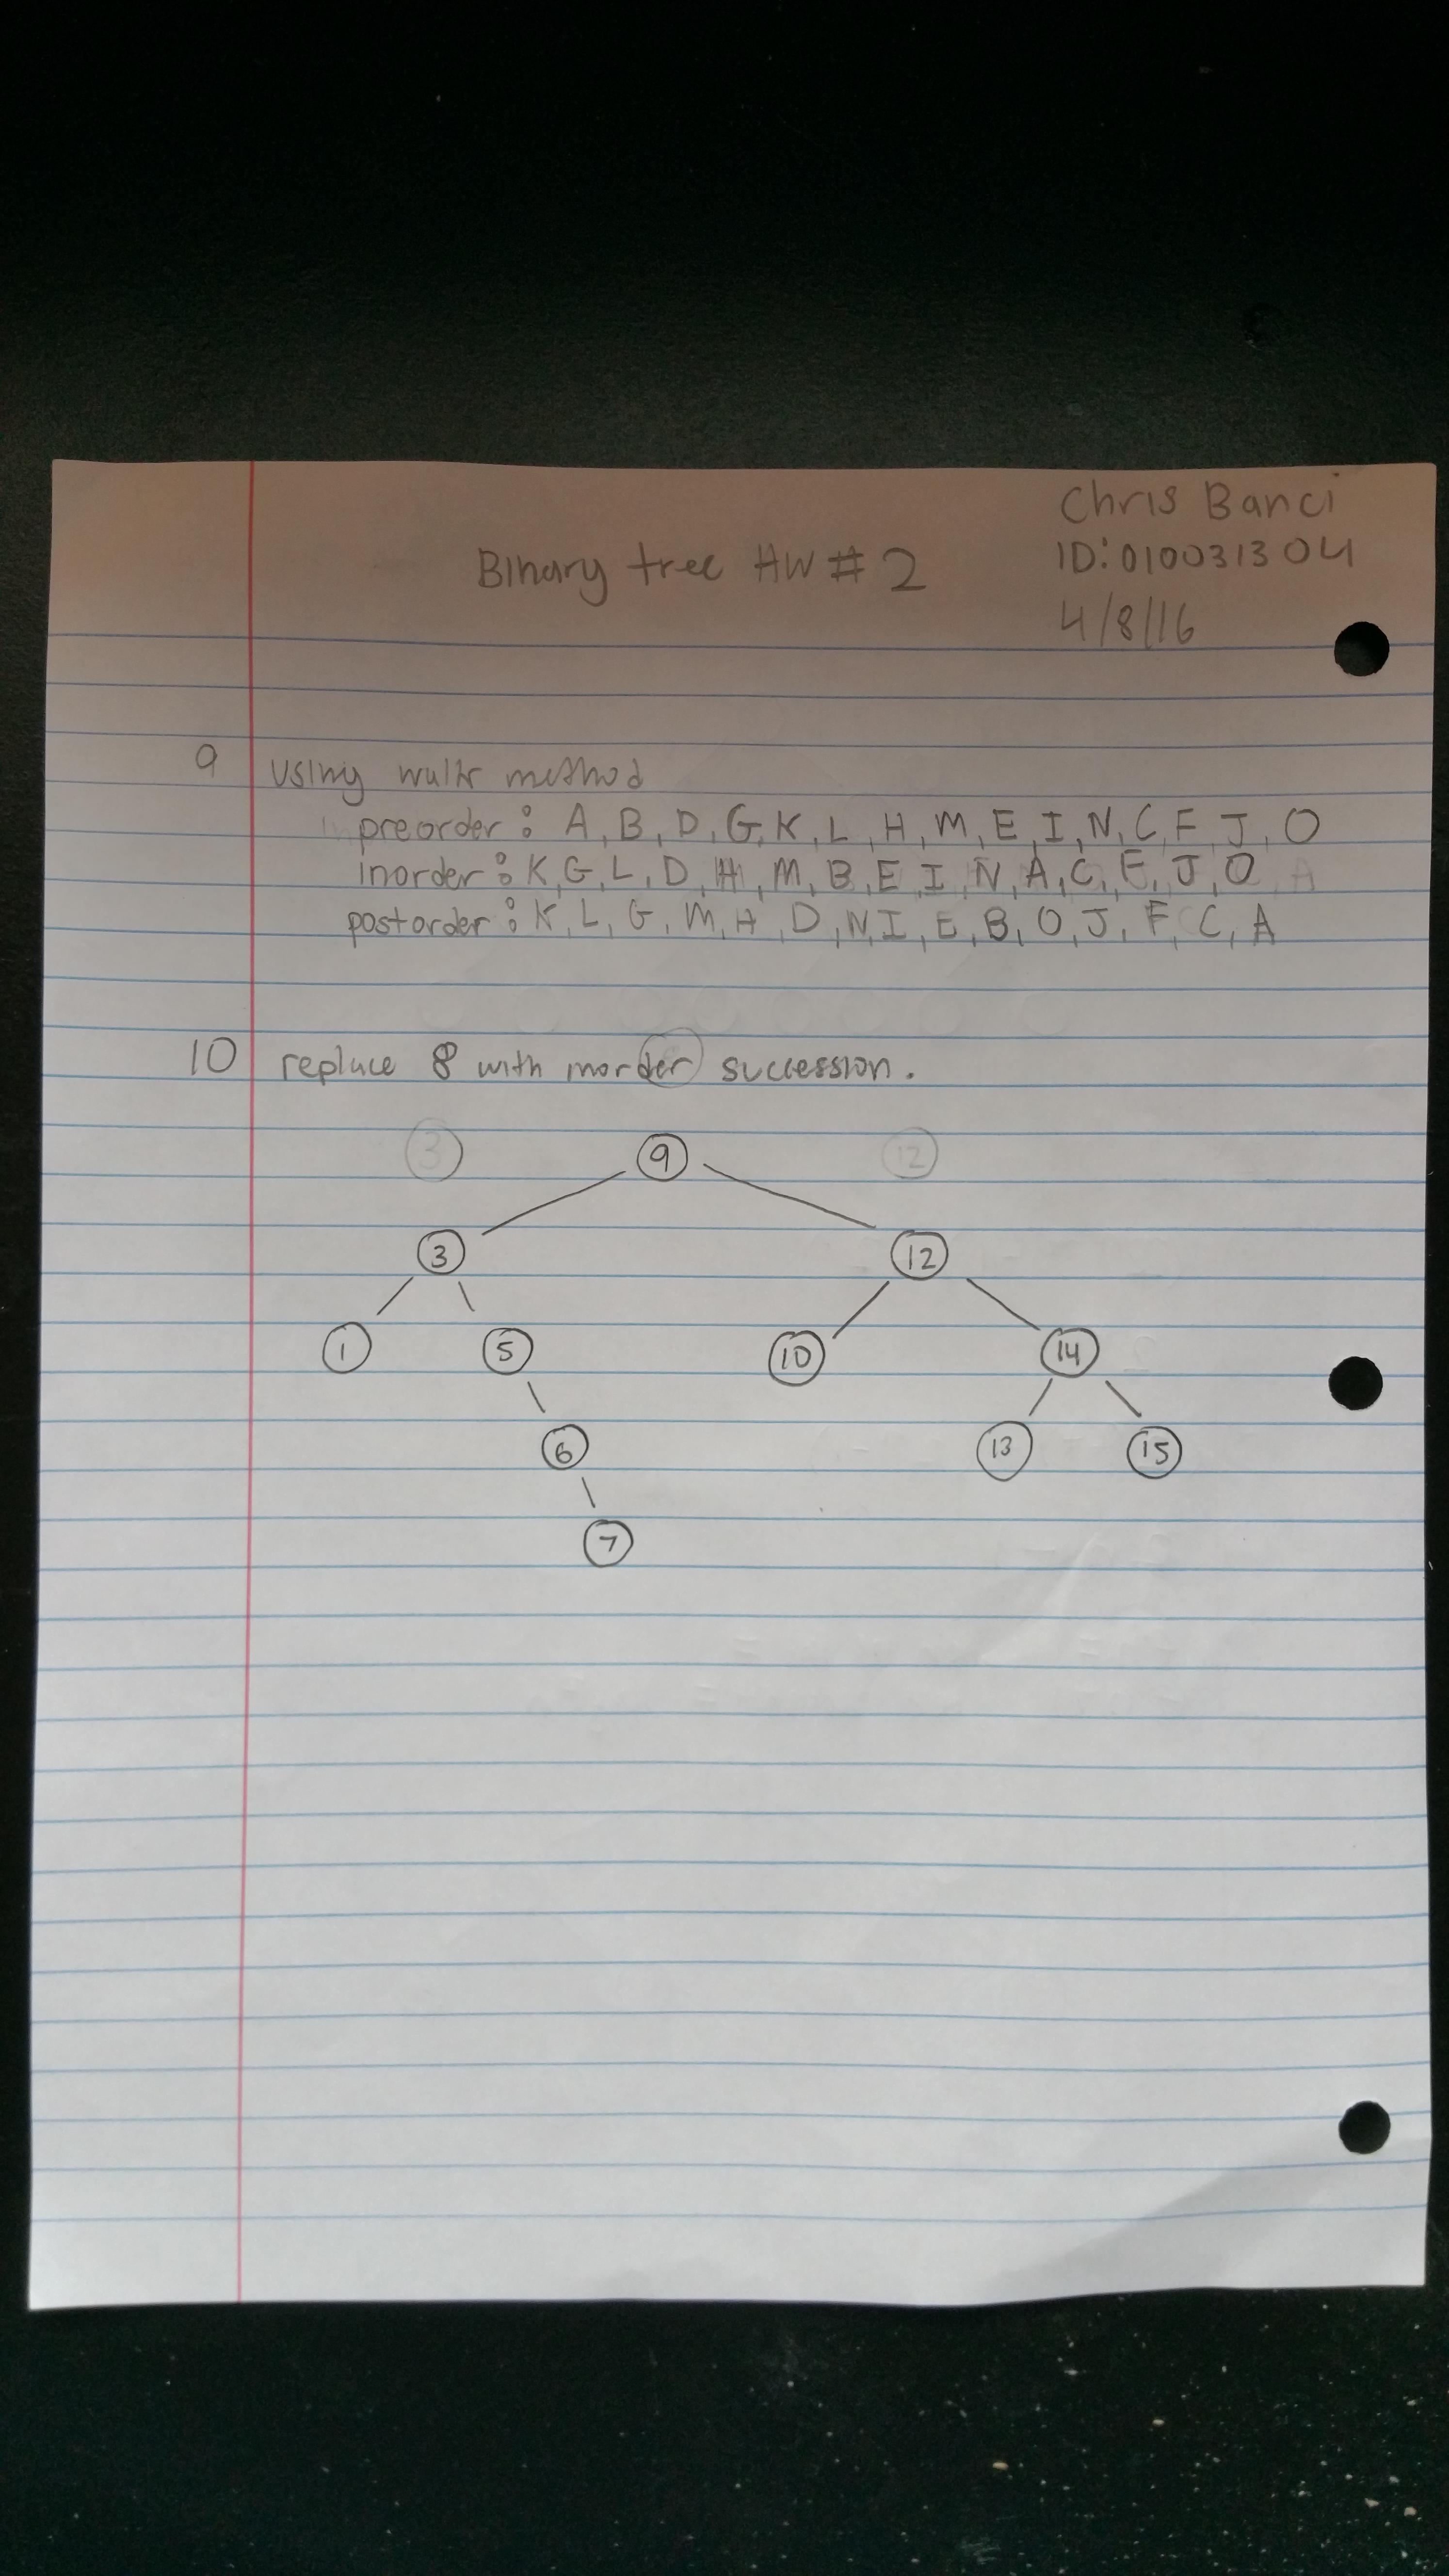 Chris Banci
Binary tree HW # 2
ID: 010031304
4/8/16
9 Using walk method
preorder : A, B, D, G, K, L, H, M, E, I, N, C, F, J, O
inorder : K, G, L, D, H, M, B, E, I, N, A, C, F, J, O
postorder : K, L, G, M, H, D, N, I, E, B, O, J, F, C, A
10 replace 8 with inorder succession.
9
3 12
1 5 10 14
6 13 15
7